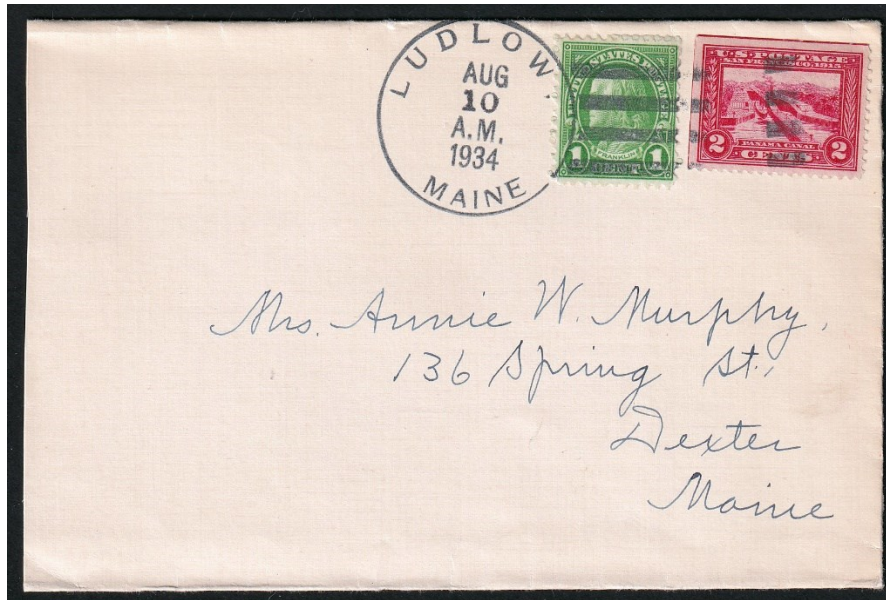 LUDLOW
AUG
10
A.M.
1934
MAINE
FRANKLIN
1 1
U.S. POSTAGE
SAN FRANCISCO 1915
PANAMA CANAL
2 CENTS 2
Mrs. Annie W. Murphy,
136 Spring St.,
Dexter
Maine